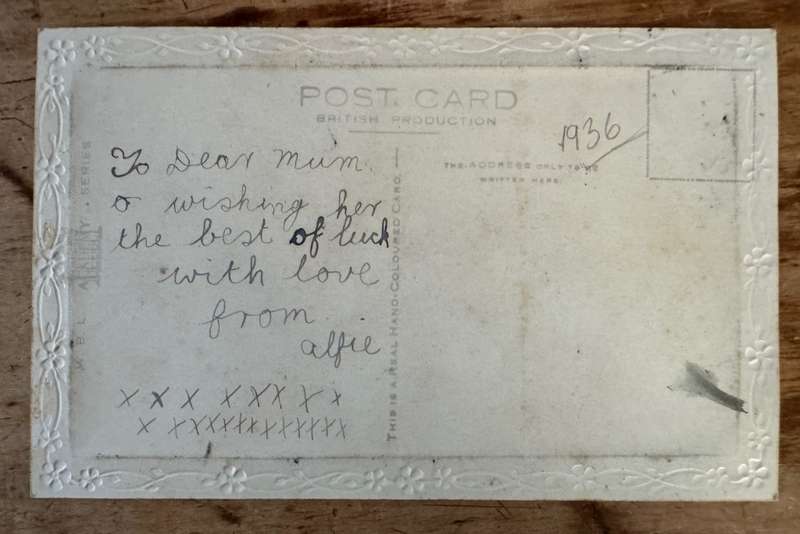 POST CARD
BRITISH PRODUCTION
1936
THE ADDRESS ONLY TO BE
WRITTEN HERE.
To Dear Mum.
wishing her
the best of luck
with love
from
alfie
x x x x x x x x
x x x x x x x x x x x x x
THIS IS A REAL HAND-COLOURED CARD.
SERIES